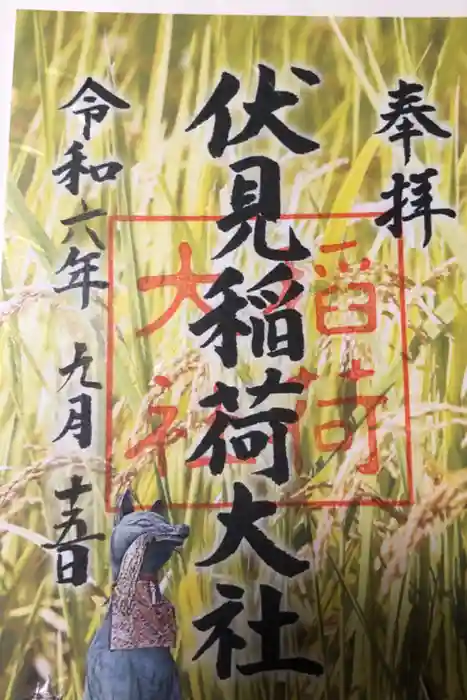 奉拝
伏見稲荷大社
令和六年九月十五日
稲荷
大社